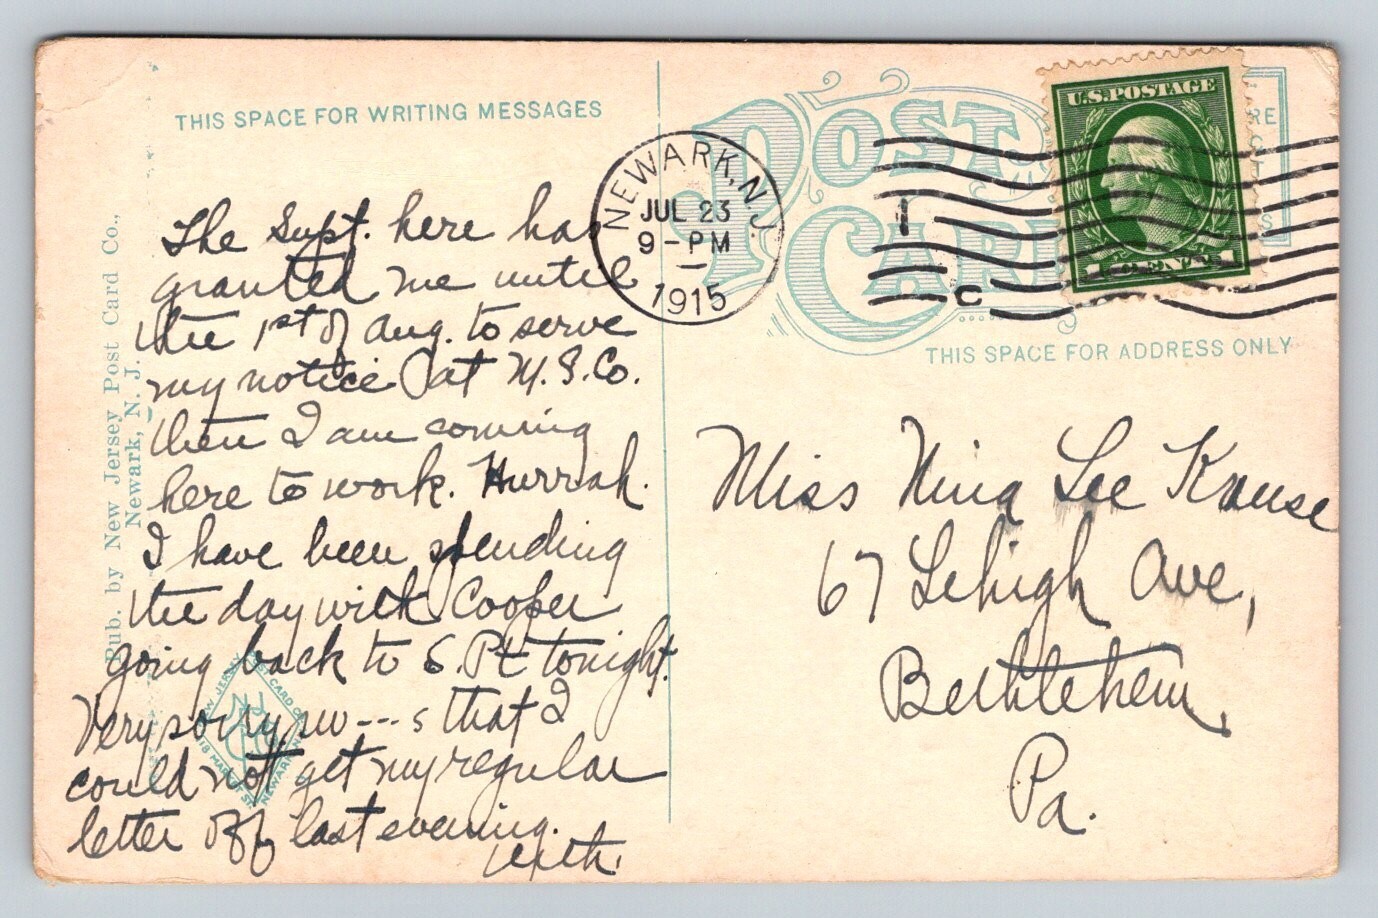 THIS SPACE FOR WRITING MESSAGES
The Supt. here has
granted me until
the 1st of Aug. to serve
my notice at M.S.Co.
then I am coming
here to work. Hurrah.
I have been spending
the day with Cooper
going back to S. Pt tonight.
Very sorry sw---s that I
could not get my regular
letter off last evening.
Pub. by New Jersey Post Card Co.,
Newark, N. J.
NEW JERSEY POST CARD CO
NEWARK
POST CARD
NEWARK, N.J.
JUL 23
9-PM
1915
U.S.POSTAGE
1 CENT 1
THIS SPACE FOR ADDRESS ONLY
Miss Nina Lee Krause
67 Lehigh Ave,
Bethlehem,
Pa.